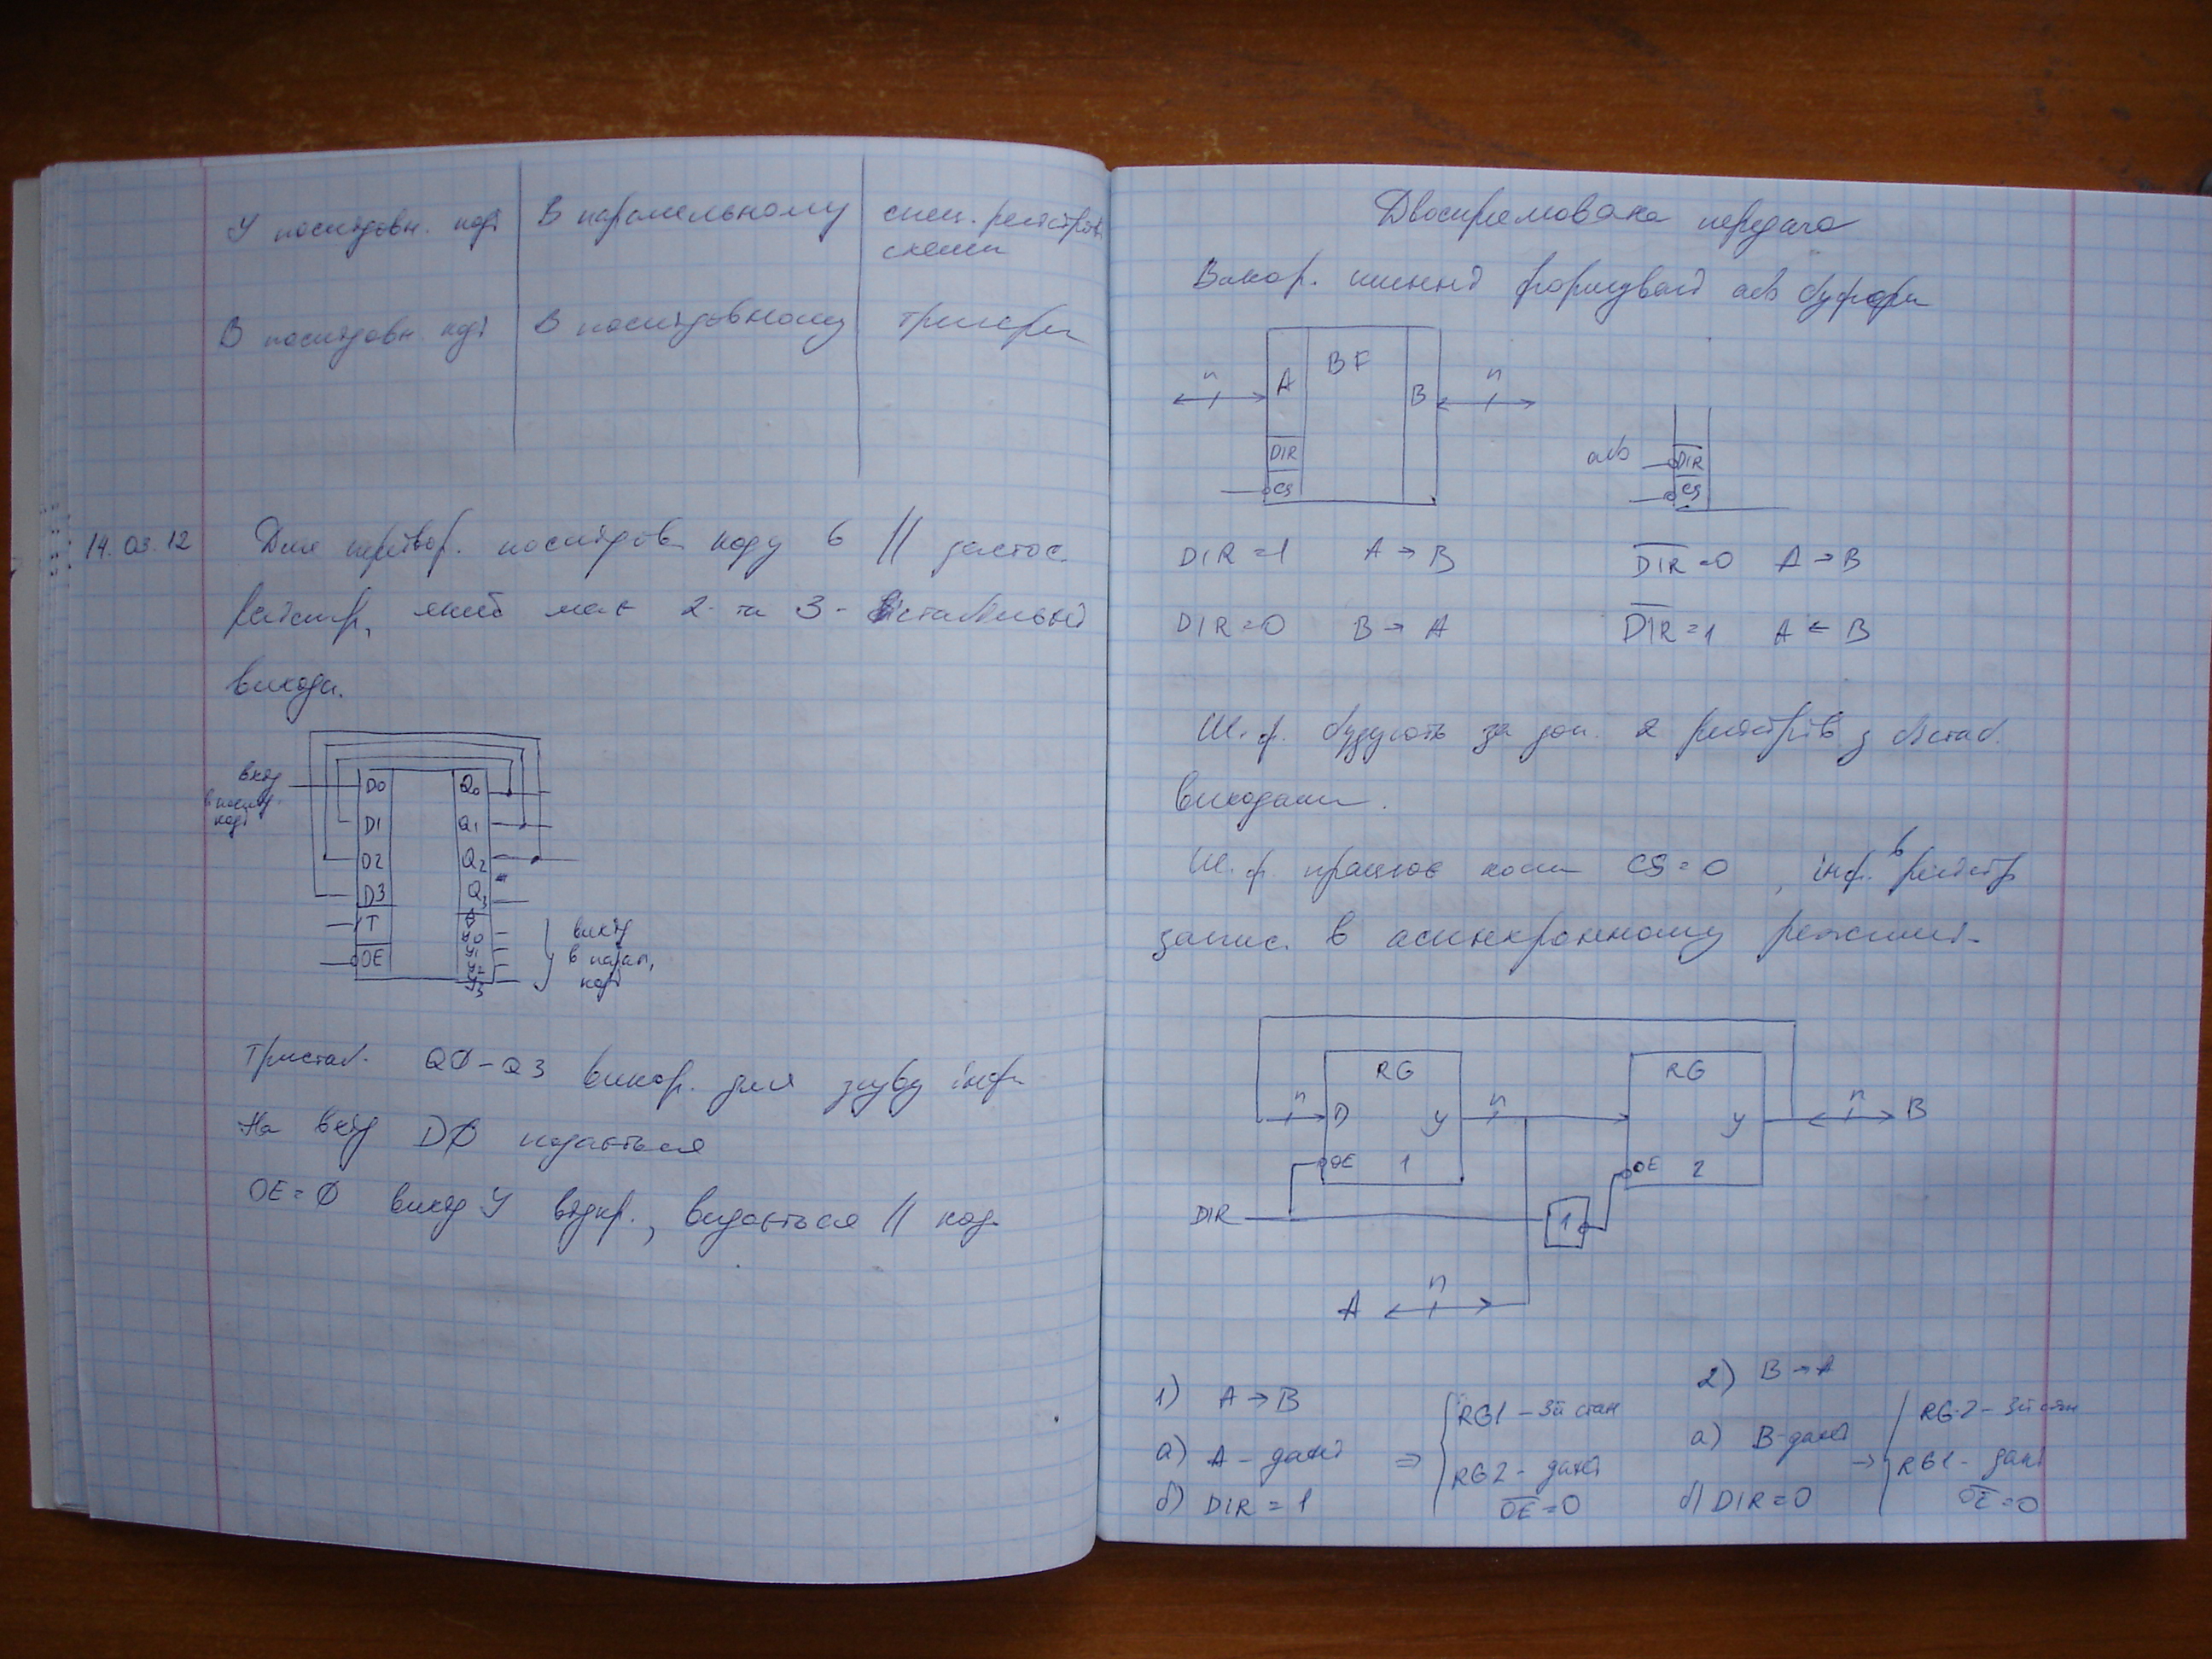 У послідовн. коді В паралельному спец. регістрові
схеми
В послідовн. коді В послідовному тригери
14.03.12 Для перетвор. послідов. коду в // застос.
регістр, який має 2- та 3-стабільні
виходи.
вхід
в послід.
коді
D0 Q0
D1 Q1
D2 Q2
D3 Q3
T
OE
У0
У1
У2
У3
вихід
в парал.
коді
Тристаб. QØ-Q3 викор. для зсуву інф.
На вхід DØ подається
OE=Ø вихід У відкр., видається // код.
Двоспрямована передача
Викор. шинні формувачі або буфери
n A BF B n
DIR
CS
або DIR
CS
DIR=1 A→B D̅I̅R̅=0 A→B
DIR=0 B→A D̅I̅R̅=1 A←B
Ш.ф. будують за доп. 2 регістрів з
виходами.
Ш.ф. працює коли CS=0, інф. в регістр
запис. в асинхронному режимі.
RG RG
n D У n У n B
OE 1 OE 2
DIR 1
A n
1) A→B
а) A - дані ⇒ RG1 - 3й стан
RG2 - дані
б) DIR=1 O̅E̅=0
2) B→A
а) B-дані → RG2 - 3й стан
RG1 - дані
б) DIR=0 O̅E̅=0